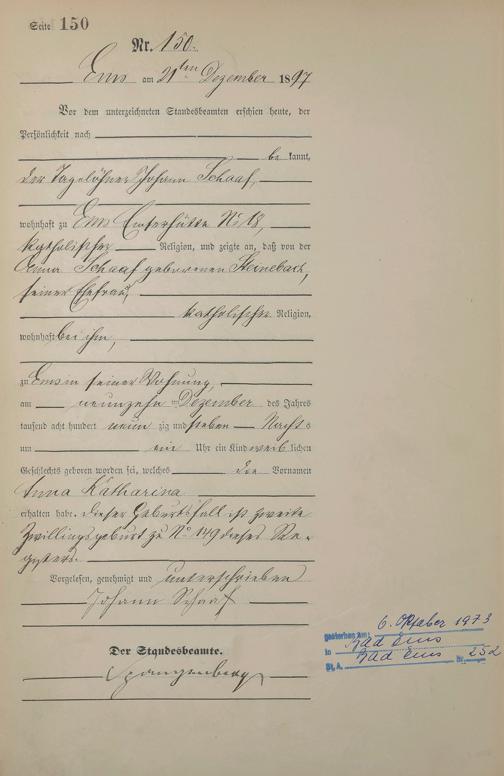 Seite 150
Nr. 150.
Ems am 21ten Dezember 1897
Vor dem unterzeichneten Standesbeamten erschien heute, der
Persönlichkeit nach
be kannt,
der Tagelöhner Johann Schaaf,
wohnhaft zu Ems Emserhütte No 18,
katholischer Religion, und zeigte an, daß von der
Anna Schaaf geborenen Steinebach,
seiner Ehefrau,
katholischer Religion,
wohnhaft bei ihm,
zu Ems in seiner Wohnung,
am neunzehn Dezember des Jahres
tausend acht hundert neun zig und sieben Nachts
um ein Uhr ein Kind weib lichen
Geschlechts geboren worden sei, welches die Vornamen
Anna Katharina
erhalten habe. Dieser Geburtsfall ist zweite
Zwillingsgeburt zu No 149 dieses Re-
gisters.
Vorgelesen, genehmigt und unterschrieben
Johann Schaaf
Der Standesbeamte.
Spangenberg
gestorben am: 6. Oktober 1973
in Bad Ems
St. A. Bad Ems Nr. 252